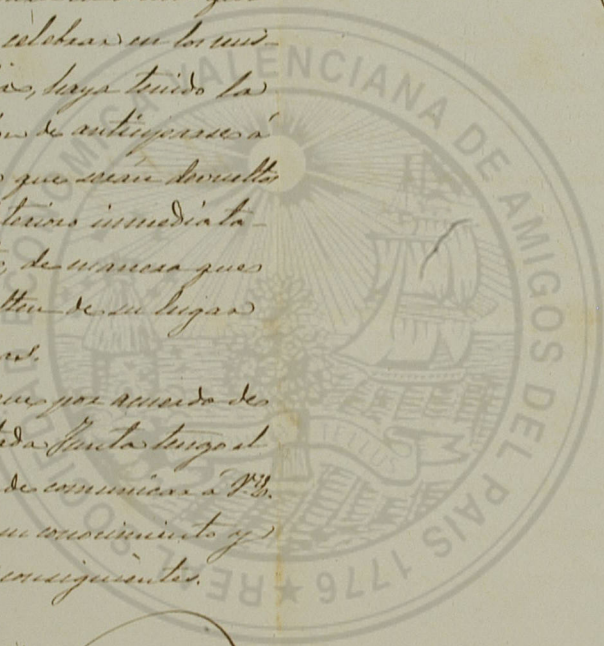 celebrar en los mis-
haya tenido la
de anticiparse á
que seran devueltos
terioro inmediata-
de manera que
de su lugar
por acuerdo de
Junta tengo el
de comunicar a V.S.
conocimiento y
consiguientes.
REAL SOCIEDAD ECONOMICA VALENCIANA DE AMIGOS DEL PAIS 1776